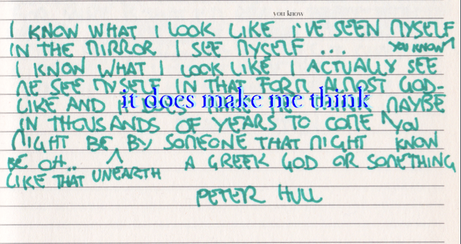 you know
I KNOW WHAT I LOOK LIKE I'VE SEEN MYSELF
IN THE MIRROR I SEE MYSELF ... YOU KNOW
I KNOW WHAT I LOOK LIKE I ACTUALLY SEE
ME SEE MYSELF IN THAT FORM ALMOST GOD-
LIKE AND IT DOES MAKE ME THINK MAYBE
it does make me think
IN THOUSANDS OF YEARS TO COME YOU
MIGHT BE BY SOMEONE THAT MIGHT KNOW
BE OH.. A GREEK GOD OR SOMETHING
LIKE THAT UNEARTH
PETER HULL